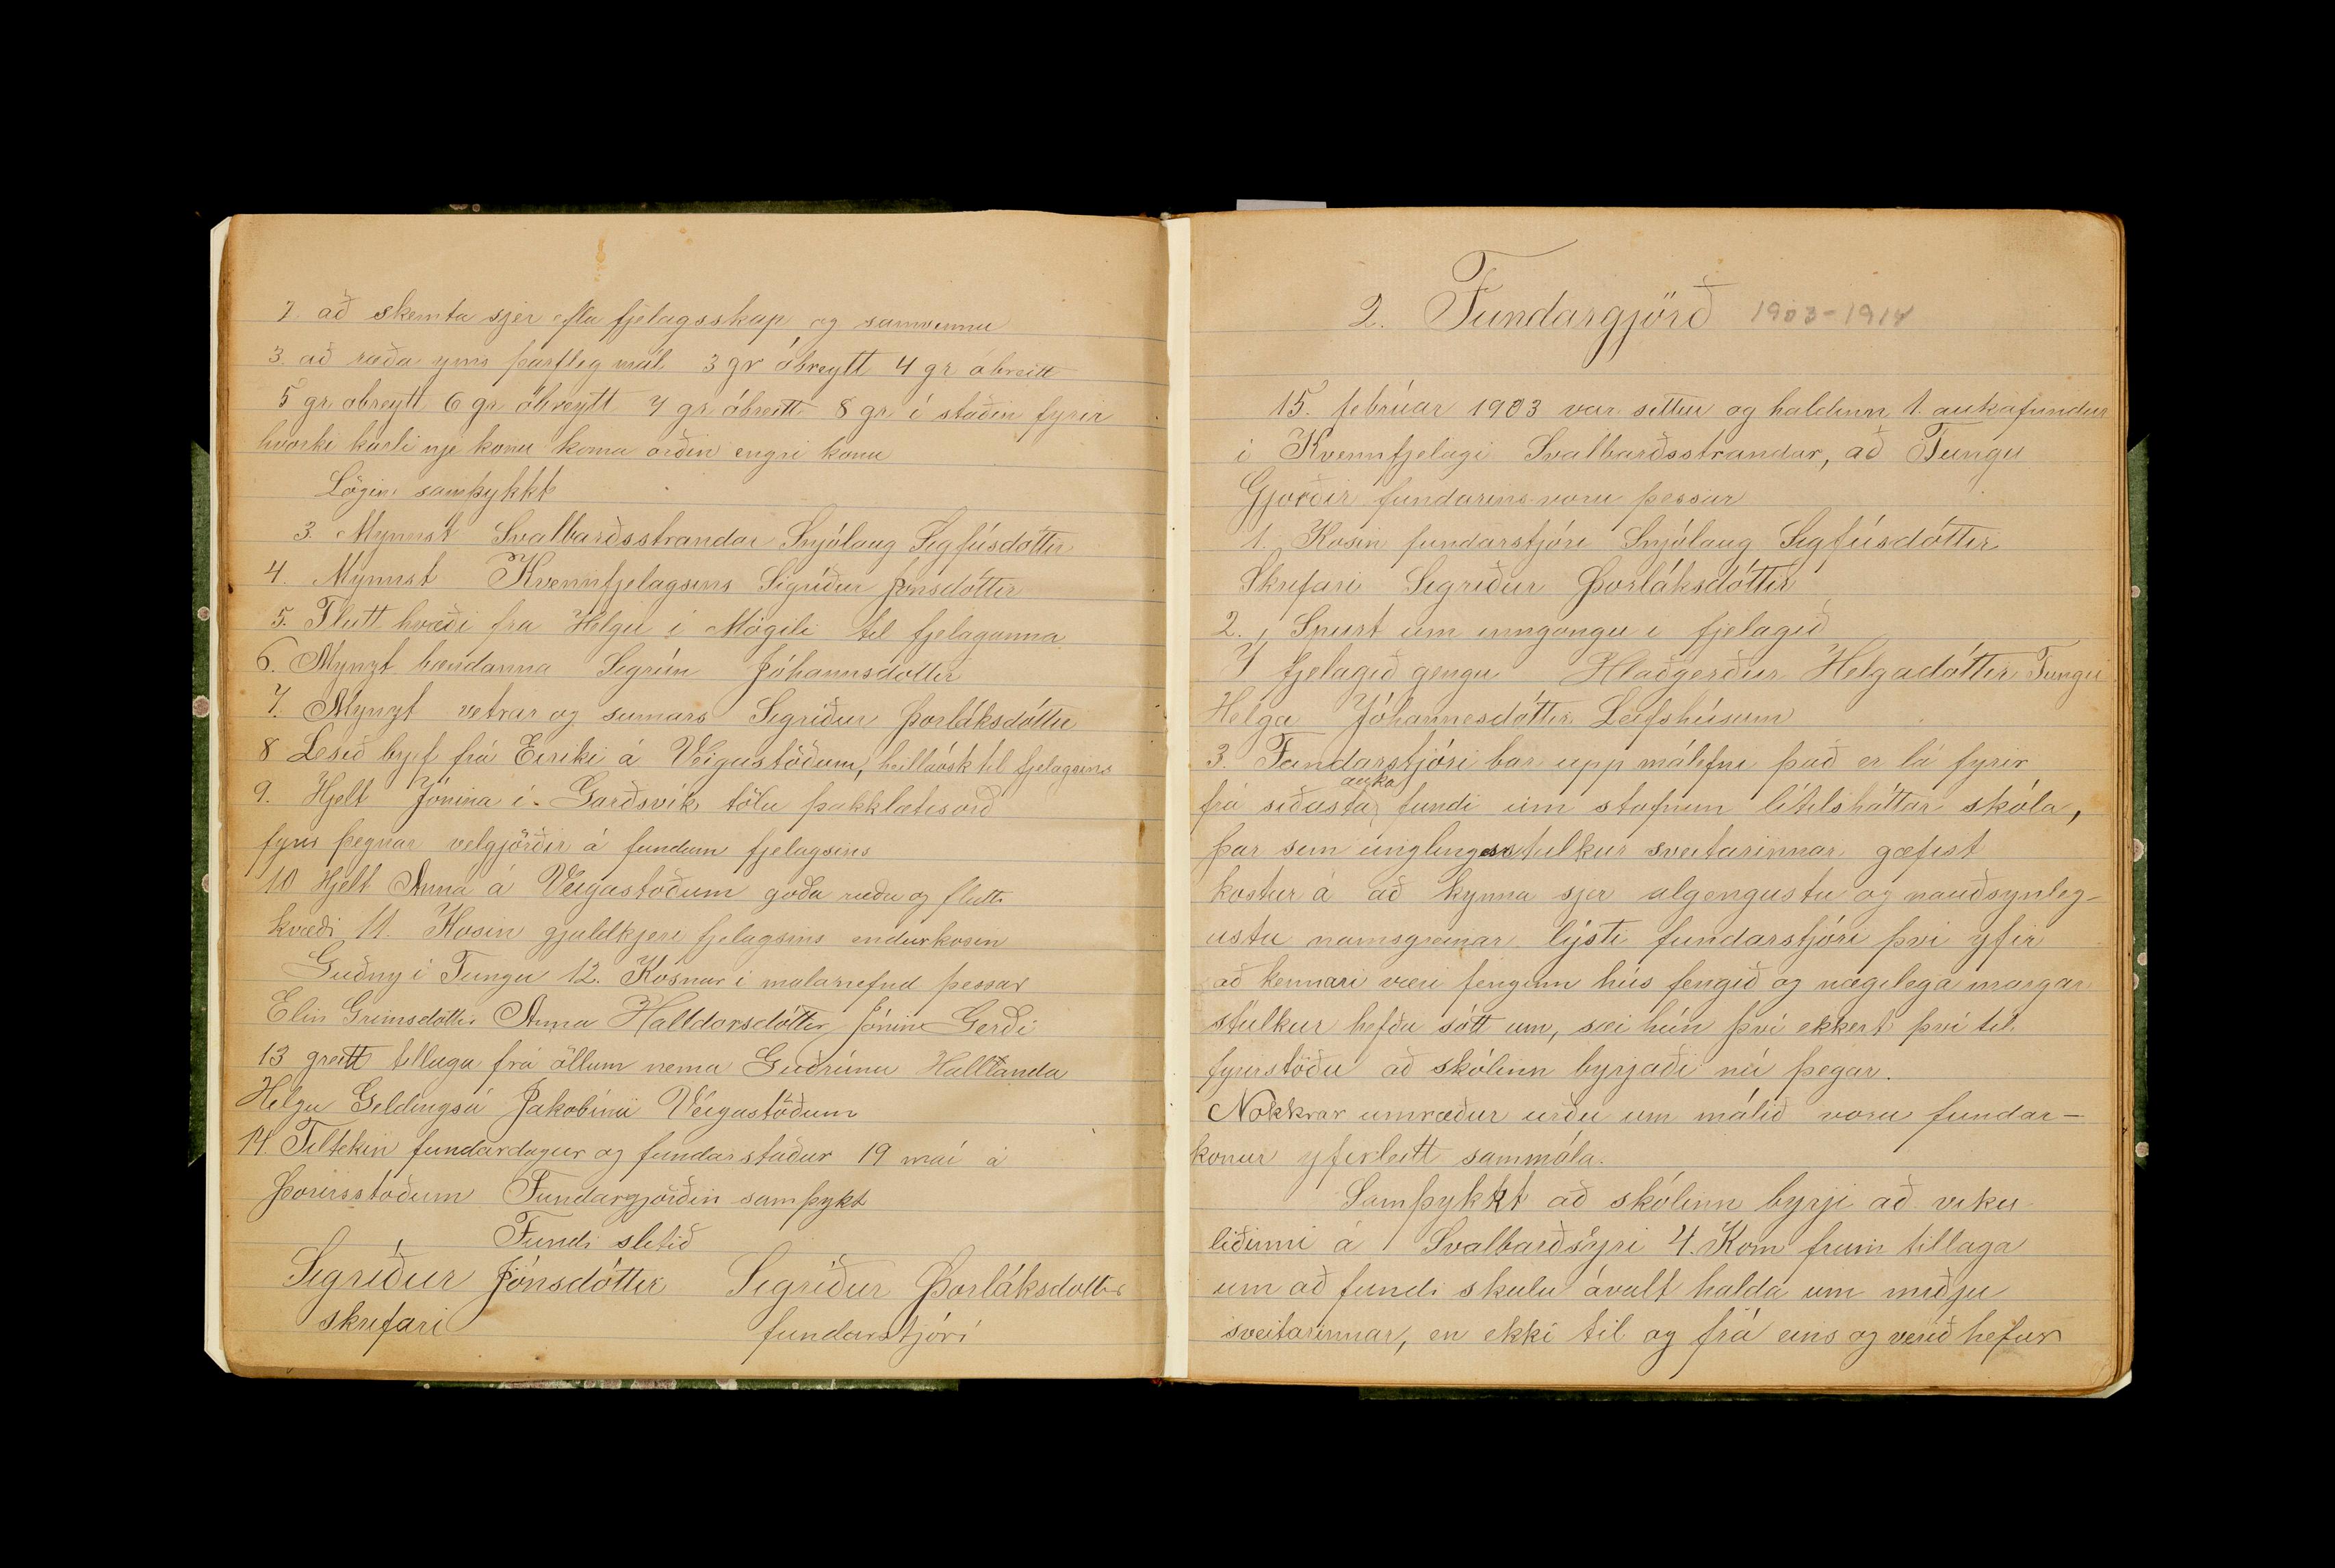 2. að skemta sjer efla fjelagsskap og samvinnu
3. að ræða yms þarfleg mál 3 gr óbreytt 4 gr óbreitt
5 gr. obreytt 6 gr óbreytt 7 gr óbreitt 8 gr. í staðin fyrir
hvorki karli nje konu koma orðin engri konu
Lögin samþykkt
3. Mynnst Svalbarðsstrandar Snjólaug Sigfúsdóttir
4. Mynnst Kvennfjelagsins Sigríður Jónsdóttir
5. Flutt kvæði fra Helgu í Mógili til fjelaganna
6. Mynzt bændanna Sigrún Jóhannsdottir
7. Mynzt vetrar og sumars Sigríður Þorláksdóttir
8 Lesið brjef frá Eiriki á Veigastöðum, heillaósk til fjelagsins
9. Hjelt Jónina í Garðsvík tölu þakklætisorð
fyrir þegnar velgjörðir á fundum fjelagsins
10 Hjelt Anna á Veigastöðum góða ræðu og flutti
kvæði 11. Kosin gjaldkjeri fjelagsins endurkosin
Guðny í Tungu 12. Kosnar i malanefnd þessar
Elin Grimsdóttir Anna Halldorsdóttir Jónina Gerði
13 greitt tillaga frá öllum nema Guðrúnu Hallanda
Helgu Geldingsá Jakobínu Veigastöðum
14. Tiltekin fundardagur og fundarstaður 19 maí á
Þorisstöðum Fundargjörðin samþykt
Fundi slitið
Sigríður Jónsdóttir Sigríður Þorláksdottir
skrifari fundarstjóri
2. Fundargjörð 1903-1914
15. febrúar 1903 var settur og haldinn 1. aukafundur
i Kvennfjelagi Svalbarðsstrandar, að Tungu
Gjorðir fundarins voru þessar
1. Kosin fundarstjóri Snjólaug Sigfúsdóttir
Skrifari Sigríður Þorláksdóttir
2. Spurt um inngöngu i fjelagið
Í fjelagið gengu Hlaðgerður Helgadóttir Tungu
Helga Jóhannesdóttir Leifshúsum
3. Fundarstjóri bar upp málefni það er lá fyrir
frá siðasta auka fundi um stofnun lítilsháttar skóla,
þar sem únglingsstulkur sveitarinnar gæfist
kostur á að kynna sjer algengustu og nauðsynleg-
ustu namsgreinar lýsti fundarstjóri því yfir
að kennari væri fenginn hús fengið og nægilega margar
stulkur hefðu sótt um, sæi hún því ekkert því til
fyrirstöðu að skólinn byrjaði nú þegar.
Nokkrar umræður urðu um málið voru fundar-
konur yfirleitt sammála.
Samþykkt að skólinn byrji að viku
liðinni á Svalbarðseyri 4. Kom fram tillaga
um að fundi skulu ávalt halda um miðju
sveitarinnar, en ekki til og frá eins og verið hefur